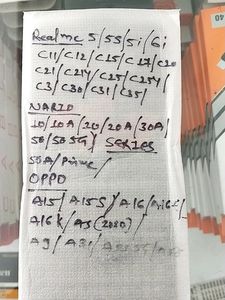 Realme 5/5S/5i/6i
C11/C12/C15/C17/C20
C21/C21Y/C25/C25Y/
C3/C30/C31/C35/
NARZO
10/10A/20/20A/30A/
50/50 5G/ SERIES
50A/Prime/
OPPO
A15/A15S/A16/A16E/
A16K/A5(2020)/
A9/A31/